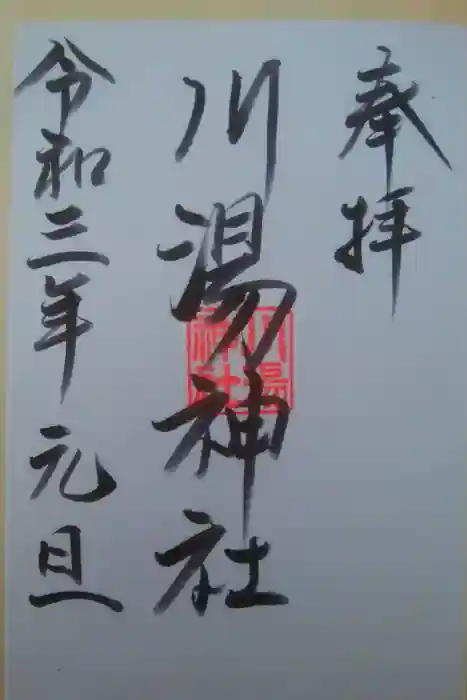 奉拝
川湯神社
川湯神社
令和三年元旦